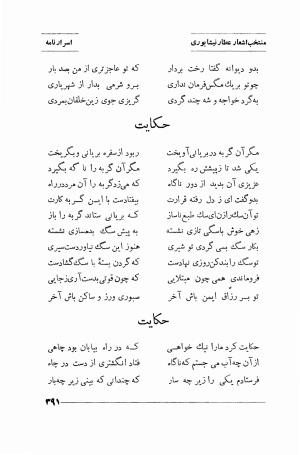 منتخب اشعار عطار نیشابوری اسرارنامه
بدو دیوانه گفتا رخت بردار که تو عاجزتری از من بصد بار
چو تو بر یک مگس فرمان نداری برو شرمی بدار از شهریاری
به گرد خواجه و شه چند گردی گریزی جوی زین خلقان بمردی
حکایت
مگر آن گربه در بریانی آویخت ربود از سفره بریانی و بگریخت
یکی شد تا ز پیشش ره بگیرد مگر آن گربه را نا گه بگیرد
عزیزی آن بدید از دور ناگاه که می زد گربه را آن مرد در راه
بدو گفت ای ز دل رفته قرارت بیفتادست با این گربه کارت
تو آن سگ را زان ای سگ طبع ناساز که بریانی ستاند گربه را باز
زهی خوش با سگی تازی نشسته به پیش سگ بدمسازی نشسته
بکار سگ بسی گردی تو شیری هنوز این سگ نیاوردت سیری
تو سگ را بند کن روزی نهادت که گردن بستهٔ با سگ گشادت
فروماندی همی چون مبتلایی که چون قوتی بدست آری ز جایی
تو بر رزّاق ایمن باش آخر صبوری ورز و ساکن باش آخر
حکایت
حکایت کرد ما را نیک خواهی که در راه بیابان بود چاهی
از آن چه آب می جستم که ناگاه فتاد انگشتری از دست در چاه
فرستادم یکی را زیر چه سار که چندانی که بینی زیر چه بار
۳۹۱